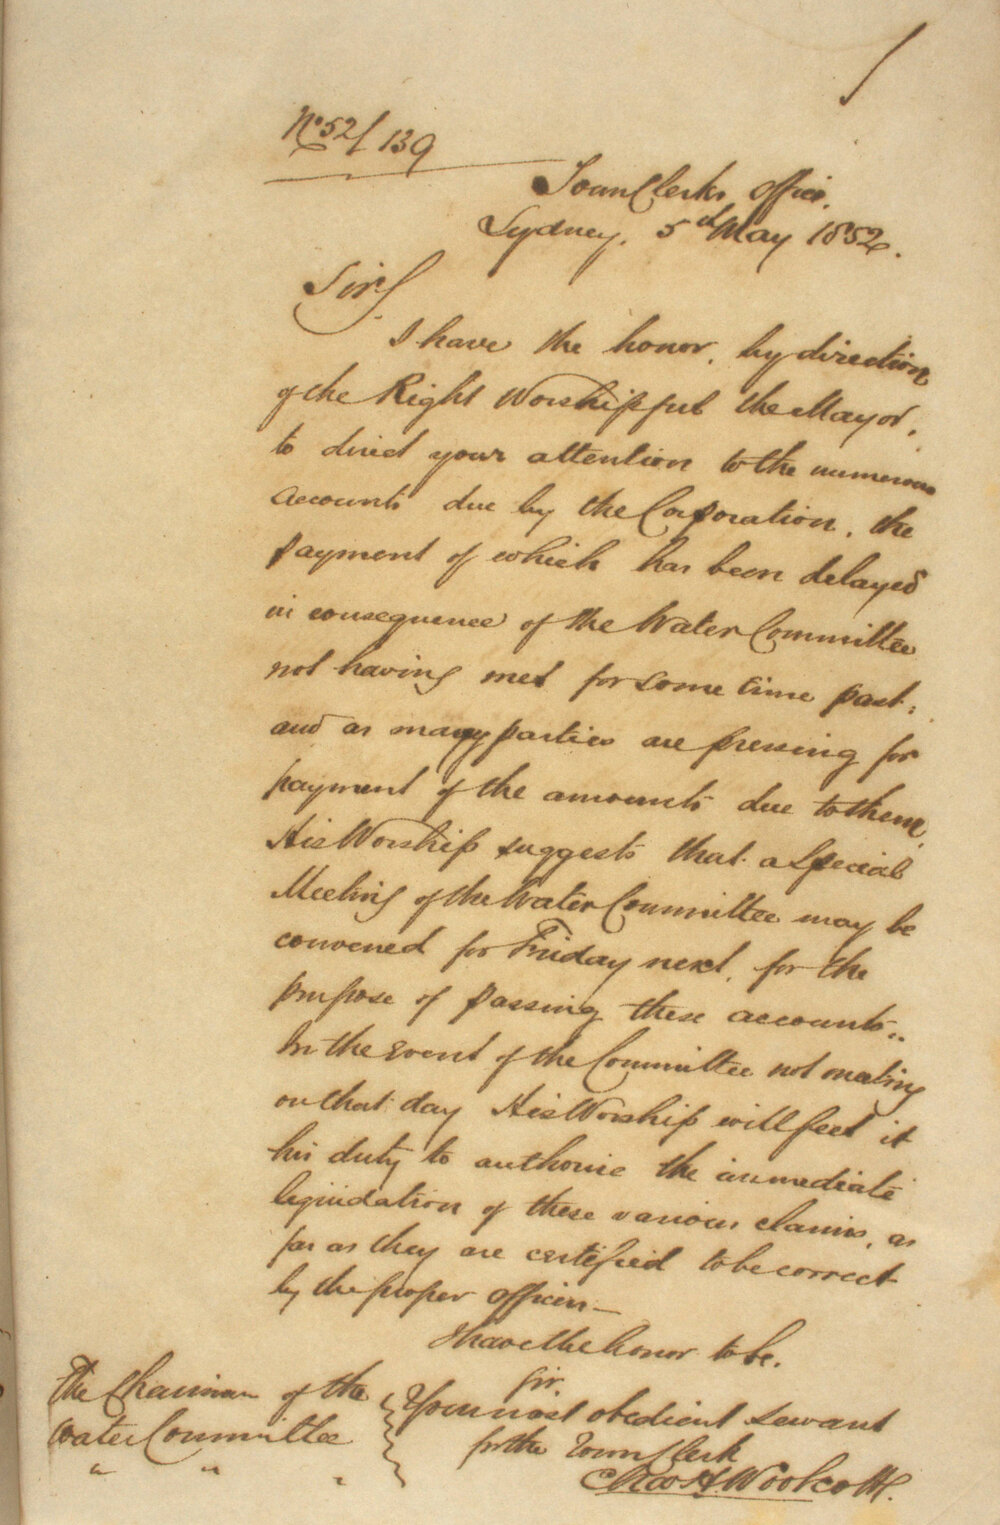 No 52/139
Town Clerks Office.
Sydney, 5th May 1852.
Sir,
I have the honor, by direction
of the Right Worshipful the Mayor,
to direct your attention to the numerous
accounts due by the Corporation, the
payment of which has been delayed
in consequence of the Water Committee
not having met for some time past:
and as many parties are pressing for
payment of the amounts due to them,
His Worship suggests that a Special
Meeting of the Water Committee may be
convened for Friday next, for the
purpose of passing these accounts..
In the event of the Committee not meeting
on that day His Worship will feel it
his duty to authorise the immediate
liquidation of these various claims, as
far as they are certified to be correct
by the proper officers—
I have the honor to be.
Sir.
Your most obedient servant
for the Town Clerk
Chas H Woolcott.
The Chairman of the
Water Committee
" " "